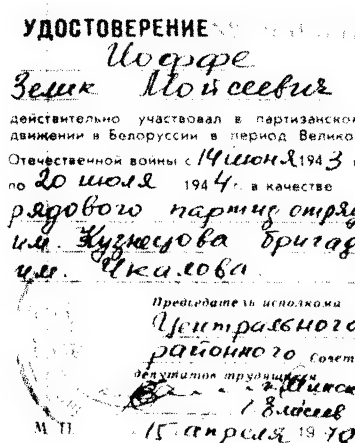 УДОСТОВЕРЕНИЕ
Иоффе
Зелик Мойсеевич
действительно участвовал в партизанском
движении в Белоруссии в период Велико
Отечественной войны с 14 июня 1943 г
по 20 июля 1944 г. в качестве
рядового партиз отряд
им. Кузнецова бригад
им. Чкалова.
Председатель исполкома
Центрального
районного Совет
депутатов трудящихся
г. Минск
15 апреля 1970
М. П.